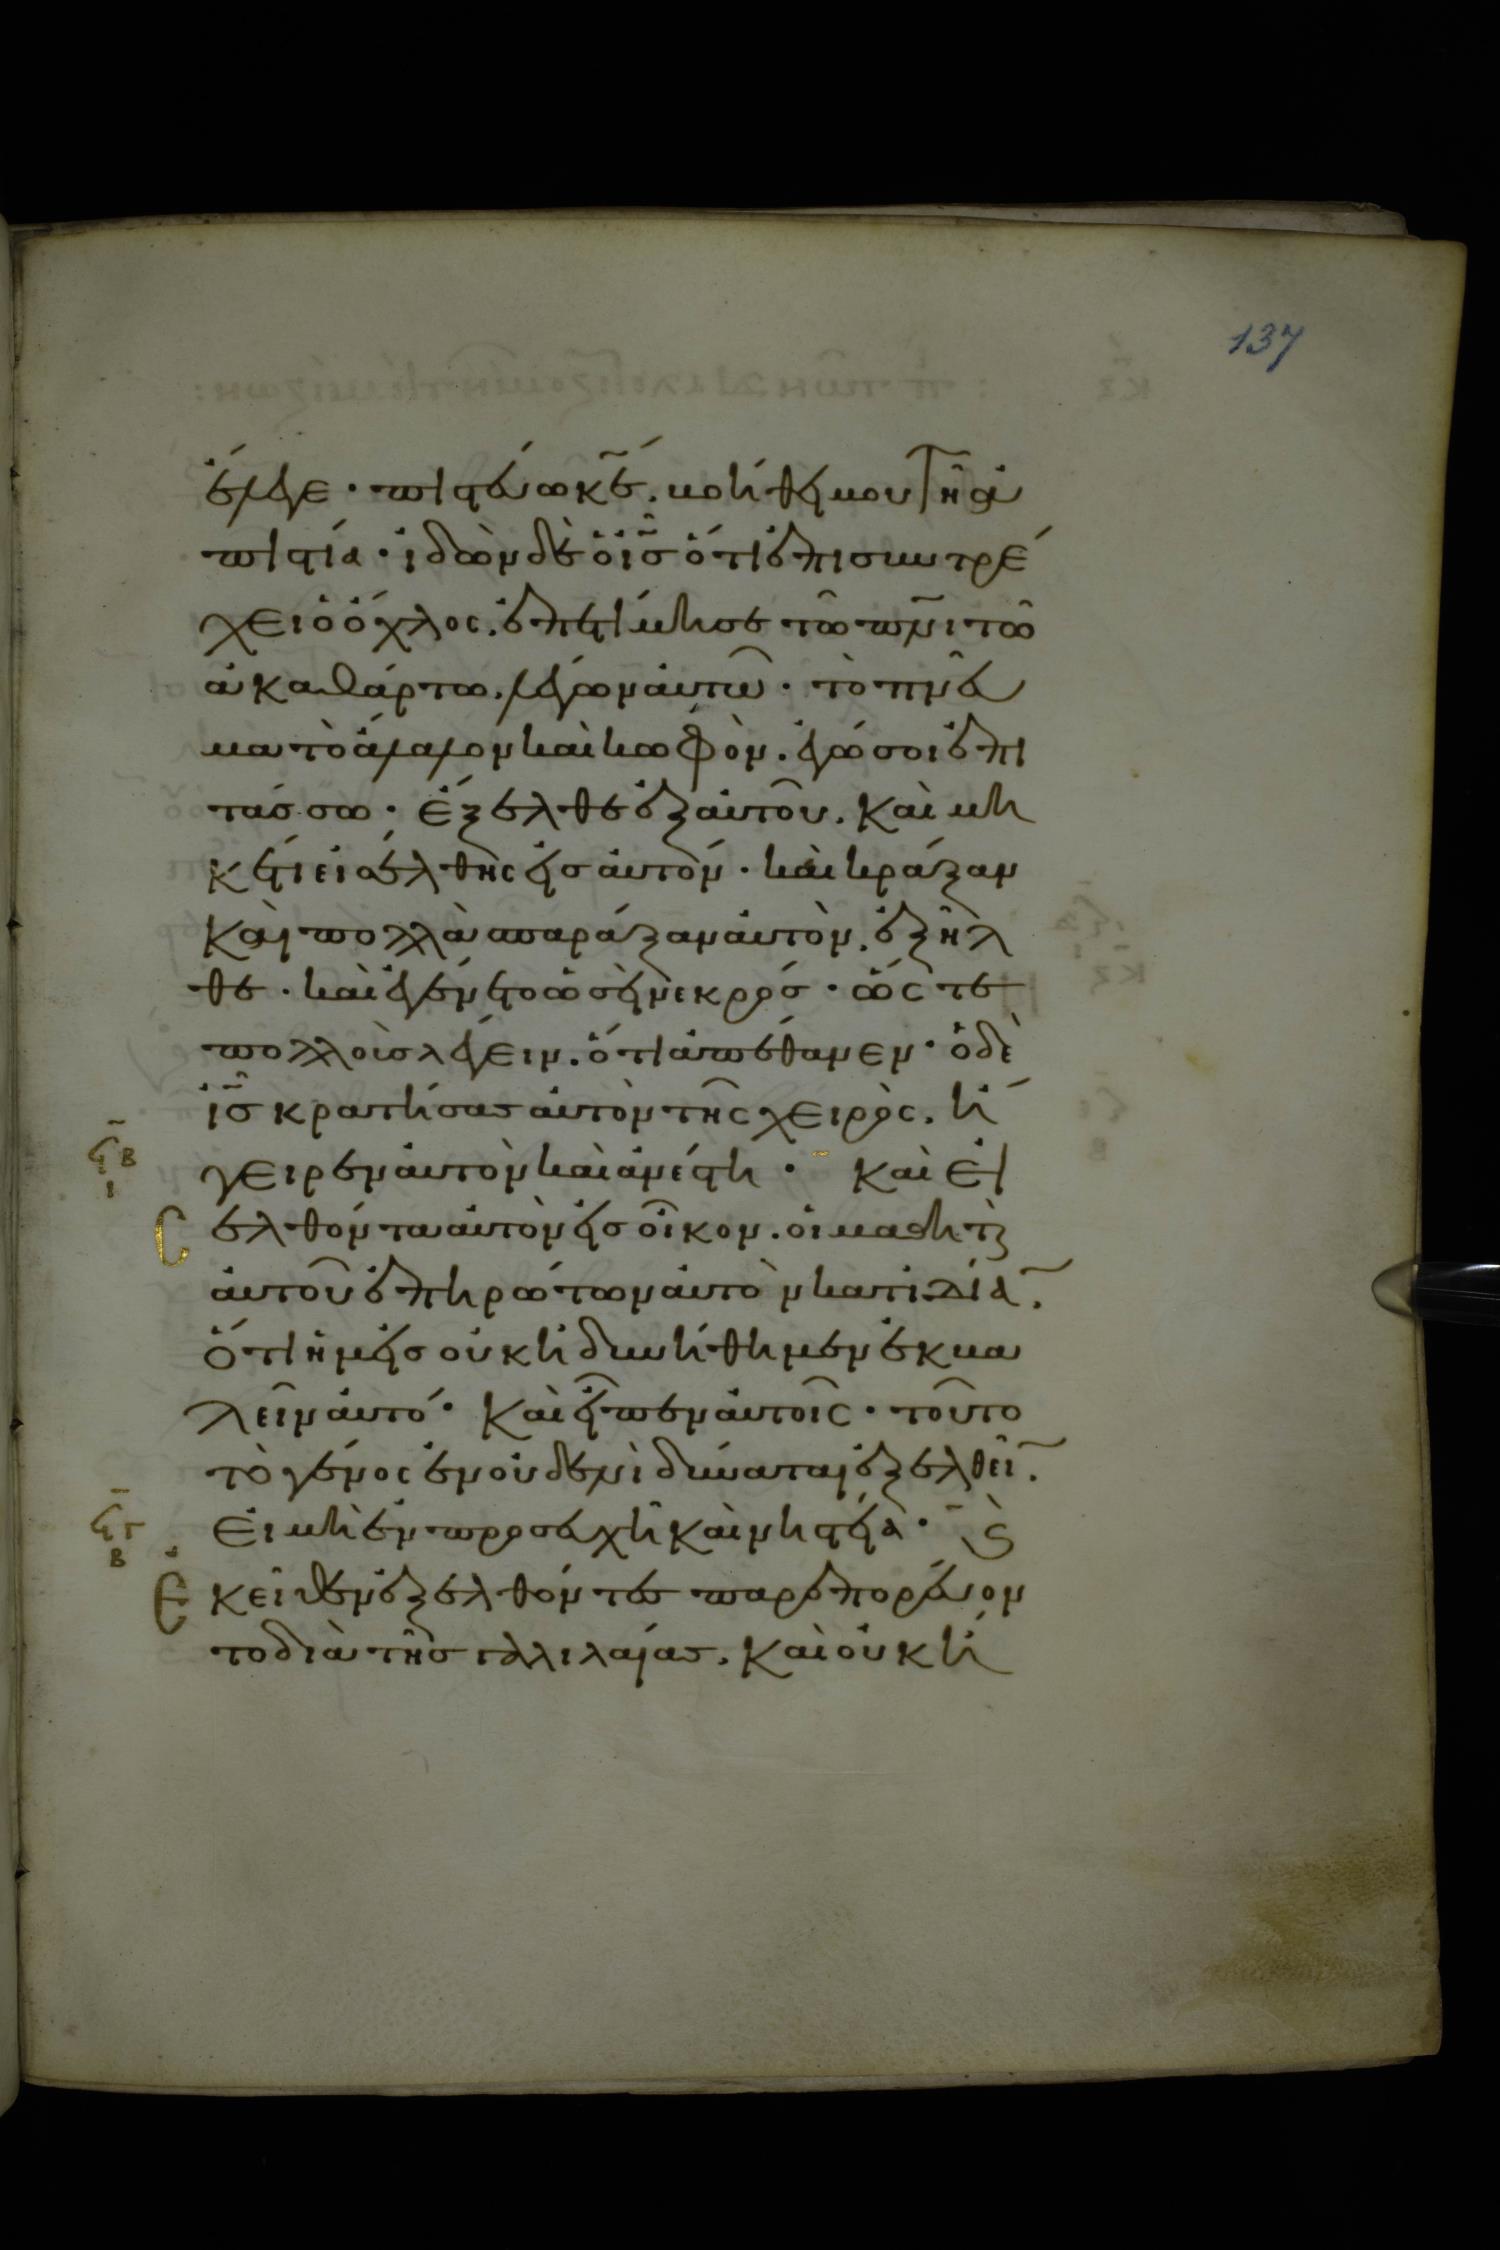 137
ἔλεγε · πιστεύω κε̄. βοήθει μου τῆ ἀ
πιστία · ἰδὼν δὲ ὁ ις̄ ὅτι ἐπισυντρέ
χει ὁ ὄχλος. ἐπετίμησε τῶ πνῑ τῶ
ἀκαθάρτω. λέγων αὐτῶ · τὸ πνεῦ
μα τὸ ἄλαλον καὶ κωφὸν. ἐγώ σοι ἐπι
τάσσω · ἔξελθε ἐξ αὐτοῦ. καὶ μη
κέτι εἰσέλθης εἰς αὐτόν · καὶ κράξαν
καὶ πολλὰ σπαράξαν αὐτὸν. ἐξῆλ
θε · καὶ ἐγένετο ὡσεὶ νεκρός · ὥστε
πολλοὺς λέγειν. ὅτι ἀπέθανεν · ὁ δὲ
ις̄ κρατήσας αὐτὸν τῆς χειρὸς. ἤ
γειρεν αὐτὸν καὶ ἀνέστη · Καὶ εἰ
ϟβ
ι
σελθόντα αὐτὸν εἰς οἶκον. οἱ μαθηταὶ
αὐτοῦ ἐπηρώτων αὐτὸν κατιδίαν.
ὅτι ἡμεῖς οὐκ ἠδυνήθημεν ἐκβα
λεῖν αὐτό · Καὶ εἶπεν αὐτοῖς · τοῦτο
τὸ γένος ἐν οὐδενὶ δύναται ἐξελθεῖν.
εἰ μὴ ἐν προσευχῆ καὶ νηστεία · Καὶ
ϟγ
β
Ἐκεῖθεν ἐξελθόντες παρεπορεύον
το διὰ τῆς γαλιλαίας. καὶ οὐκ ἤ